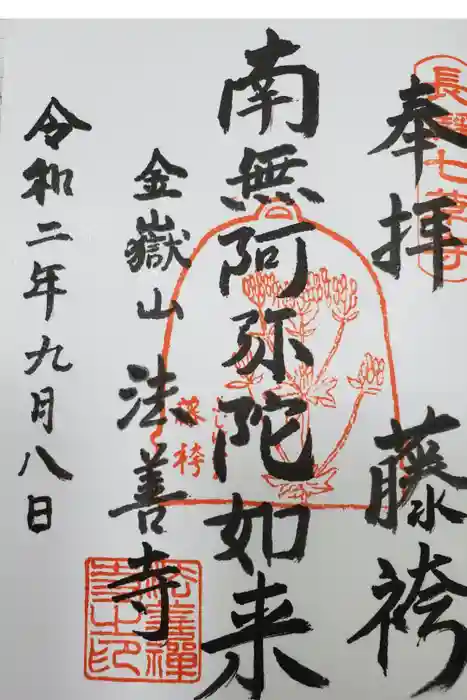 奉拝 藤袴
長瀞七草寺
南無阿弥陀如来
藤袴
金嶽山 法善寺
令和二年九月八日